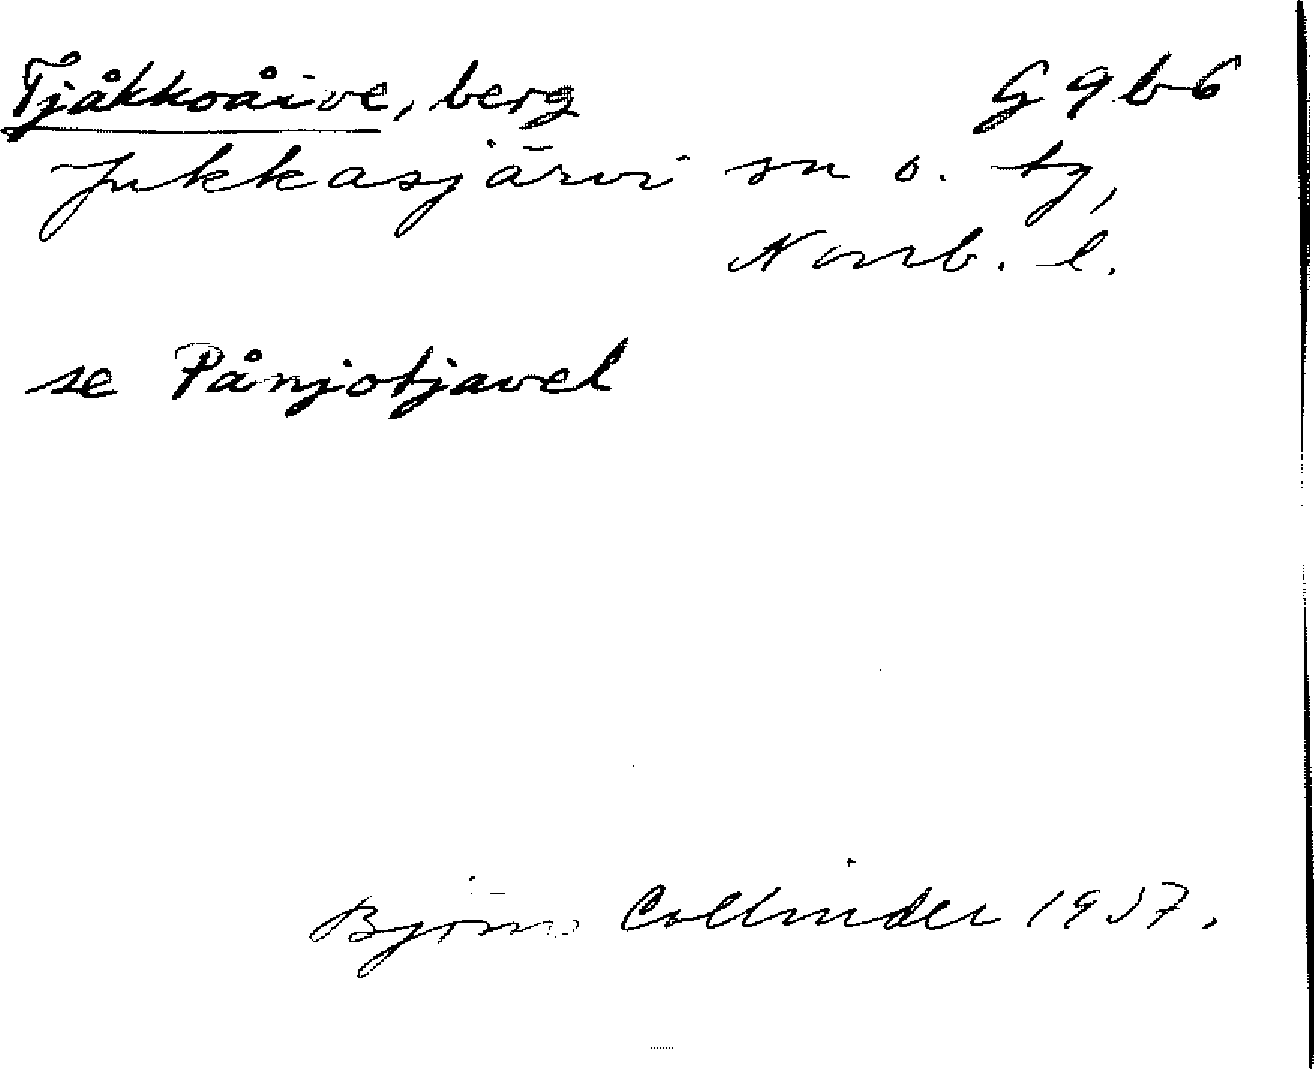 Tjåkkoåive, berg G 9 b 6
Jukkasjärvi sn o. tg,
Norrb. l.
se Pånjotjavel
Björn Collinder 1957.